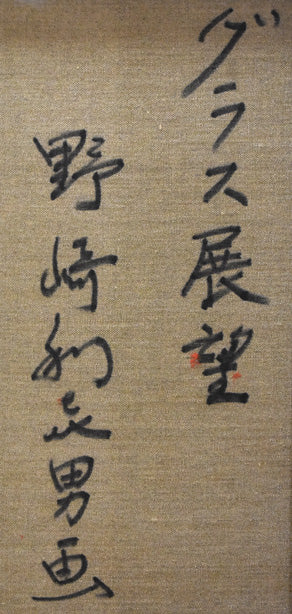 グラス展望
野崎利喜男画